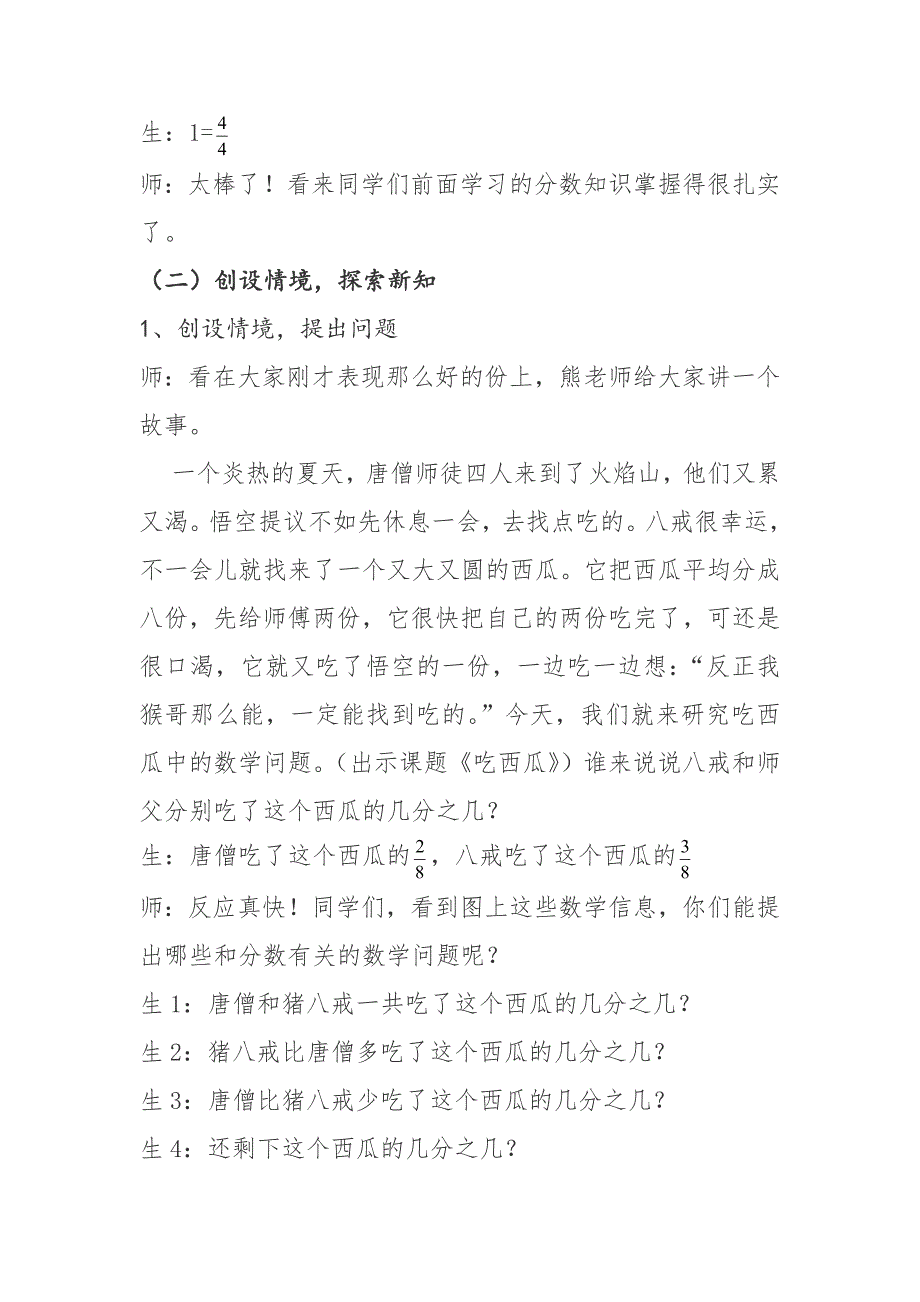 生：1=4/4
师：太棒了！看来同学们前面学习的分数知识掌握得很扎实
了。
（二）创设情境，探索新知
1、创设情境，提出问题
师：看在大家刚才表现那么好的份上，熊老师给大家讲一个
故事。
一个炎热的夏天，唐僧师徒四人来到了火焰山，他们又累
又渴。悟空提议不如先休息一会，去找点吃的。八戒很幸运，
不一会儿就找来了一个又大又圆的西瓜。它把西瓜平均分成
八份，先给师傅两份，它很快把自己的两份吃完了，可还是
很口渴，它就又吃了悟空的一份，一边吃一边想：“反正我
猴哥那么能，一定能找到吃的。”今天，我们就来研究吃西
瓜中的数学问题。（出示课题《吃西瓜》）谁来说说八戒和师
父分别吃了这个西瓜的几分之几？
生：唐僧吃了这个西瓜的2/8，八戒吃了这个西瓜的3/8
师：反应真快！同学们，看到图上这些数学信息，你们能提
出哪些和分数有关的数学问题呢？
生1：唐僧和猪八戒一共吃了这个西瓜的几分之几？
生2：猪八戒比唐僧多吃了这个西瓜的几分之几？
生3：唐僧比猪八戒少吃了这个西瓜的几分之几？
生4：还剩下这个西瓜的几分之几？